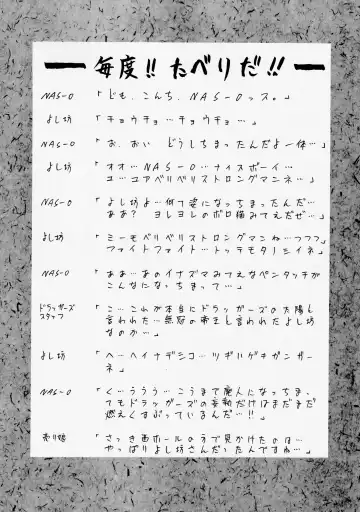 毎度!! たべりだ!!
NAS-O 「ども、こんち、NAS-Oッス。」
よし坊 「チョウチョ…チョウチョ…」
NAS-O 「お、おい どうしちまったんだよ一体…」
よし坊 「オオ…NAS-O…ナイスボーイ…
ユ…ユアベリベリストロングマンネ…」
NAS-O 「よしよ…何て姿になっちまったんだ…
ああ? ヨレヨレのボロ猫みてえだぜ…」
よし坊 「ミーモベリベリストロングマンね…フフフ
ファイトファイト…トッテモタノシイネ」
NAS-O 「ああ…あのイナズマみてえなペンタッチが
こんなになっちまって…」
ドラッガーズ
スタッフ 「こ…これが本当にドラッガーズの太陽と
言われた…無冠の帝王と言われたよし坊
なのか…」
よし坊 「ヘーヘイナデシコ…ツギハゲキガンガー
ネ」
NAS-O 「く…ううう…こうまで廃人になっちま、
てもドラッガーズの妄動だけはまだまだ
燃えくすぶっているんだ…!!」
売り娘 「さっき西ホールの方で見かけたのは…
やっぱりよし坊さんだったんですね…」